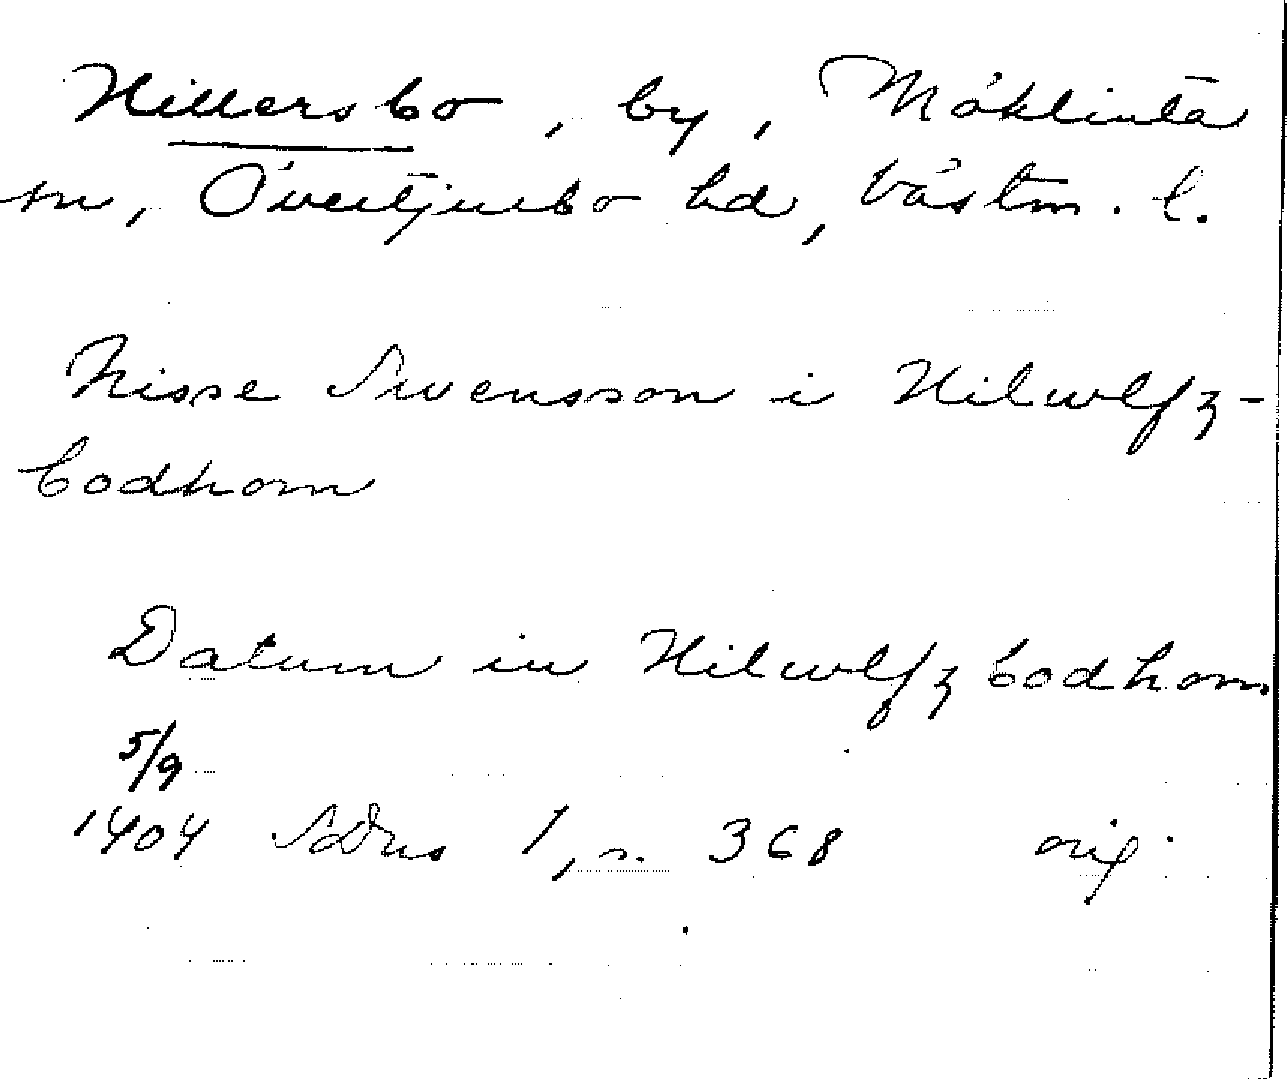 Hillersbo, by, Möklinta
sn, Övertjurbo hd, Västm. l.
Nisse Swensson i Hilwlfz-
bodhom
Datum in Hilwlfzbodhom
5/9
1404 SDns 1, s. 368 orig.